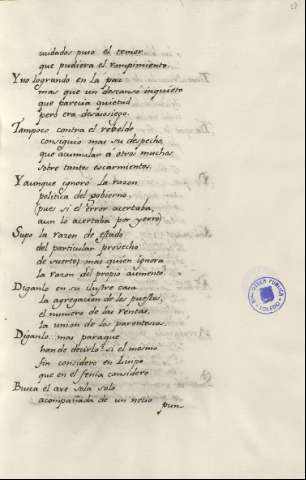 cuidados puso el temor
que pudiera el rompimiento.
Y no logrando en la paz
mas que un descanso inquieto
que parecia quietud
pero era desasosiego.
Tampoco contra el rebelde
consiguio mas su despecho,
que acumular á otros muchos
sobre tantos escarmientos.
Y aunque ignoró la razon
politica del gobierno,
(pues si el error acertaba,
aun lo acertaba por yerro)
Supo la razon de estado
del particular provecho
de suerte, mas quien ignora
la razon del propio aumento.
Diganlo en su ilustre casa
la agregacion de los puestos,
el numero de las rentas,
la union de los parentesos.
Diganlo: mas paraque
han de decirlo? si el mesmo
fin considero en
que en el fenix considero
Busca el ave sola solo
acompañada de un necio